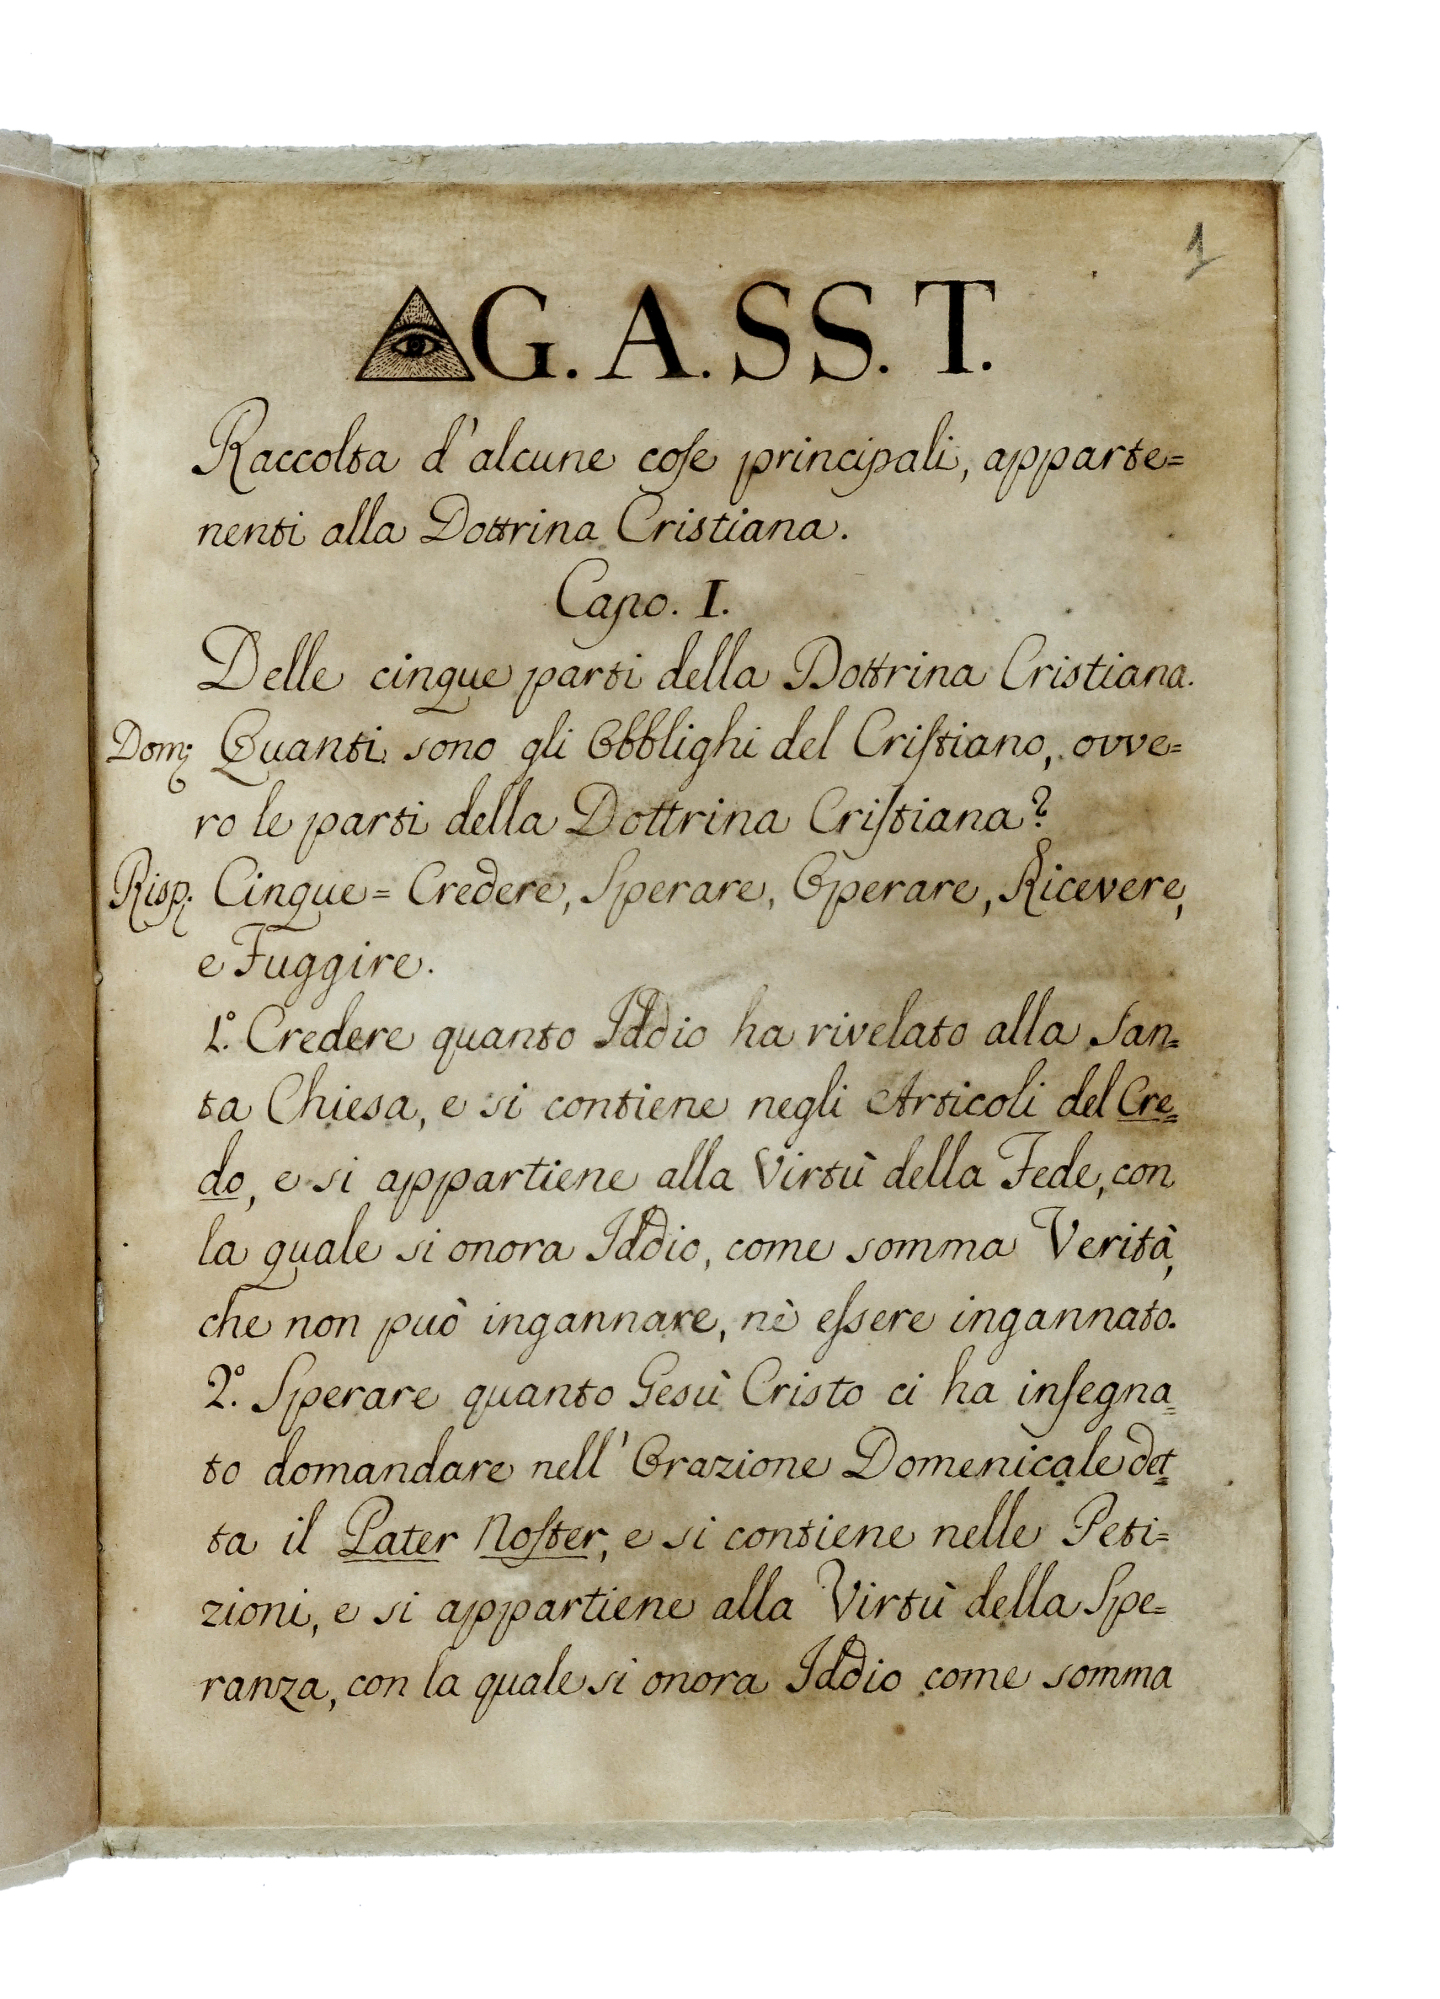 1
G. A. SS. T.
Raccolta d'alcune coſe principali, apparte=
nenti alla Dottrina Cristiana.
Capo. I.
Delle cinque parti della Dottrina Cristiana.
Dom; Quanti sono gli Obblighi del Criſtiano, ovve=
ro le parti della Dottrina Criſtiana?
Risp; Cinque= Credere, Sperare, Operare, Ricevere,
e Fuggire.
1.º Credere quanto Iddio ha rivelato alla San=
ta Chiesa, e si contiene negli Articoli del Cre=
do, e si appartiene alla Virtù della Fede, con
la quale si onora Iddio, come somma Verità,
che non può ingannare, nè eſsere ingannato.
2.º Sperare quanto Gesù Cristo ci ha inſegna=
to domandare nell'Orazione Domenicale det=
ta il Pater Noſter, e si contiene nelle Peti=
zioni, e si appartiene alla Virtù della Spe=
ranza, con la quale si onora Iddio come somma